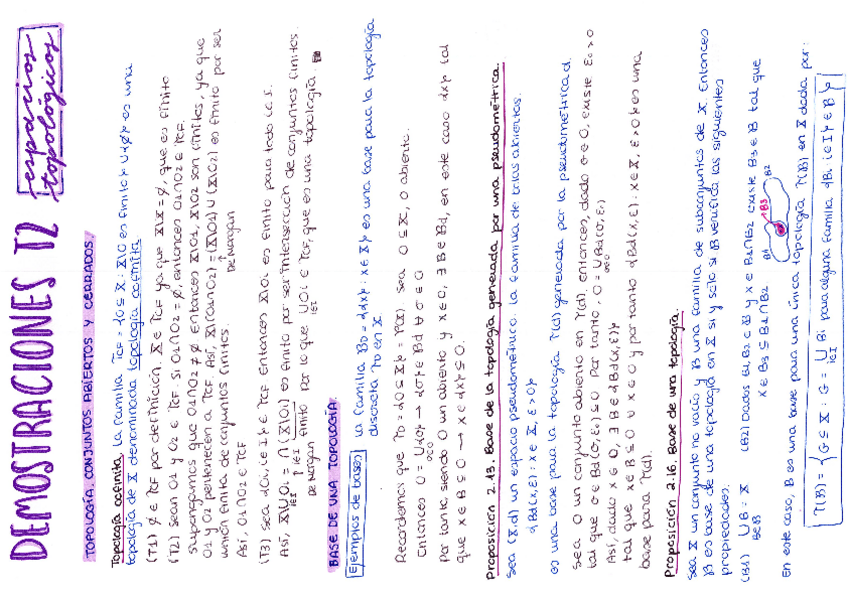 DEMOSTRACIONES T2
espacios topológicos
TOPOLOGÍA. CONJUNTOS ABIERTOS Y CERRADOS.
Topología cofinita. La familia τCF = {O ⊆ X : X\O es finito} ∪ {∅} es una
topología de X denominada topología cofinita
(T1) ∅ ∈ τCF por definición, X ∈ τCF ya que X\X = ∅, que es finito
(T2) Sean O1 y O2 ∈ τCF. Si O1∩O2 = ∅, entonces O1∩O2 ∈ τCF.
Supongamos que O1∩O2 ≠ ∅. Entonces X\O1, X\O2 son finitos, ya que
O1 y O2 pertenecen a τCF. Así, X\(O1∩O2) = (X\O1) ∪ (X\O2) es finito por ser
unión finita de conjuntos finitos.
De Morgan
Así, O1∩O2 ∈ τCF
(T3) Sea {Oi, i ∈ I} ∈ τCF. Entonces X\Oi es finito para todo i ∈ I.
Así, X\∪Oi = ∩(X\Oi) es finito por ser intersección de conjuntos finitos.
i∈I i∈I finito Por lo que ∪Oi ∈ τCF, que es una topología
De Morgan i∈I
BASE DE UNA TOPOLOGÍA.
Ejemplos de bases La familia BD = {{x} : x ∈ X} es una base para la topología
discreta τD en X.
Recordemos que τD = {O ⊆ X} = P(X). Sea O ⊆ X, O abierto.
Entonces O = ∪{σ} → {σ} ∈ Bd ∀ σ ∈ O
σ∈O
Por tanto siendo O un abierto y x ∈ O, ∃ B ∈ Bd, en este caso {x} tal
que x ∈ B ⊆ O → x ∈ {x} ⊆ O.
Proposición 2.13. Base de la topología generada por una pseudométrica.
Sea (X,d) un espacio pseudométrico. La familia de bolas abiertas.
{Bd(x,ε) : x ∈ X, ε > 0}
es una base para la topología τ(d) generada por la pseudométrica d.
Sea O un conjunto abierto en τ(d), entonces, dado σ ∈ O, existe εσ > 0
tal que σ ∈ Bd(σ, εσ) ⊆ O. Por tanto, O = ∪Bd(σ, εσ)
σ∈O
Así, dado x ∈ O, ∃ B ∈ {Bd(x,ε)}
tal que x ∈ B ⊆ O ∀ x ∈ O y por tanto {Bd(x,ε) : x ∈ X, ε > 0} es una
base para τ(d).
Proposición 2.16. Base de una topología.
Sea X un conjunto no vacío y B una familia de subconjuntos de X. Entonces
B es base de una topología en X si y sólo si B verifica las siguientes
propiedades.
(B1) ∪B = X (B2) Dados B1, B2 ∈ B y x ∈ B1∩B2 existe B3 ∈ B tal que
B∈B x ∈ B3 ⊆ B1∩B2
B1 B3 B2
En este caso, B es una base para una única topología τ(B) en X dada por:
τ(B) = {G ⊆ X : G = ∪ Bi para alguna familia {Bi, i ∈ I} ∈ B}
i∈I